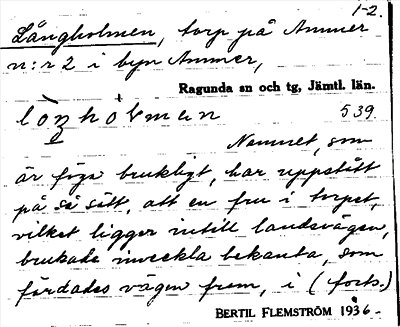 1-2.
Långholmen, torp på Ammer
n:r 2 i byn Ammer,
Ragunda sn och tg, Jämtl. län.
539
Namnet, som
är föga brukligt, har uppstått
på så sätt, att en fru i torpet,
vilket ligger intill landsvägen,
brukade inveckla bekanta, som
färdades vägen fram, i (forts.)
BERTIL FLEMSTRÖM 1936.